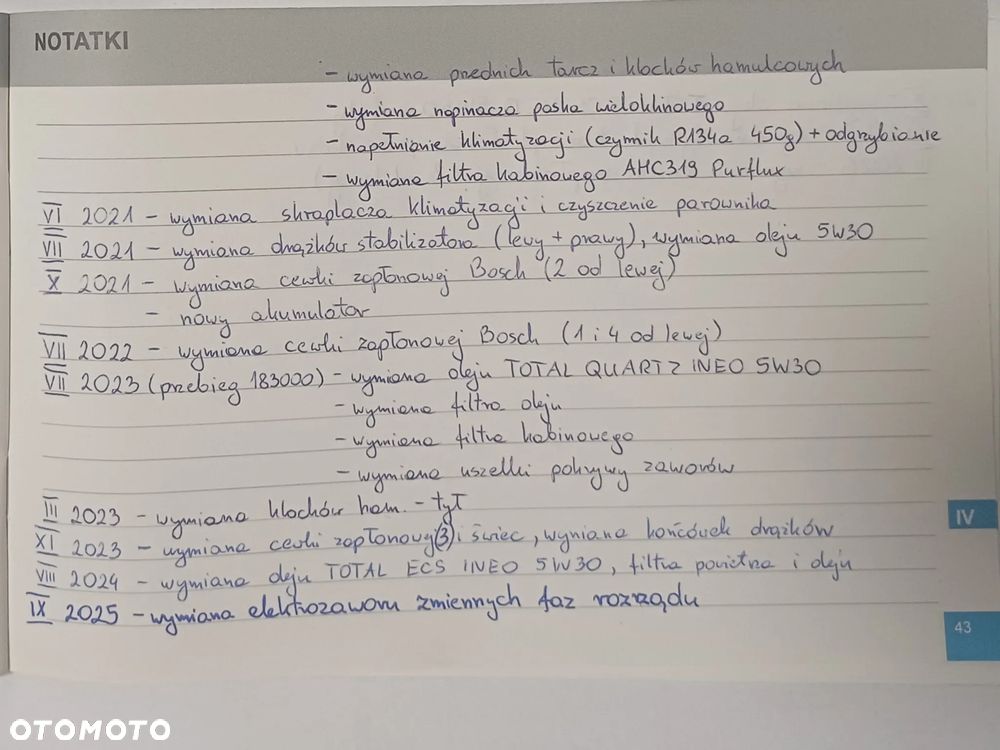 NOTATKI
- wymiana przednich tarcz i klocków hamulcowych
- wymiana napinacza paska wieloklinowego
- napełnianie klimatyzacji (czynnik R134a 450g) + odgrzybianie
- wymiana filtra kabinowego AHC319 Purflux
VI 2021 - wymiana skraplacza klimatyzacji i czyszczenie parownika
VII 2021 - wymiana drążków stabilizatora (lewy + prawy), wymiana oleju 5W30
X 2021 - wymiana cewki zapłonowej Bosch (2 od lewej)
- nowy akumulator
VII 2022 - wymiana cewki zapłonowej Bosch (1 i 4 od lewej)
VII 2023 (przebieg 183000) - wymiana oleju TOTAL QUARTZ INEO 5W30
- wymiana filtra oleju
- wymiana filtra kabinowego
- wymiana uszelki pokrywy zaworów
III 2023 - wymiana klocków ham. - tył
XI 2023 - wymiana cewki zapłonowy (3) i świec, wymiana końcówek drążków
VIII 2024 - wymiana oleju TOTAL ECS INEO 5W30, filtra powietrza i oleju
IX 2025 - wymiana elektrozaworu zmiennych faz rozrządu
IV
43
OTOMOTO